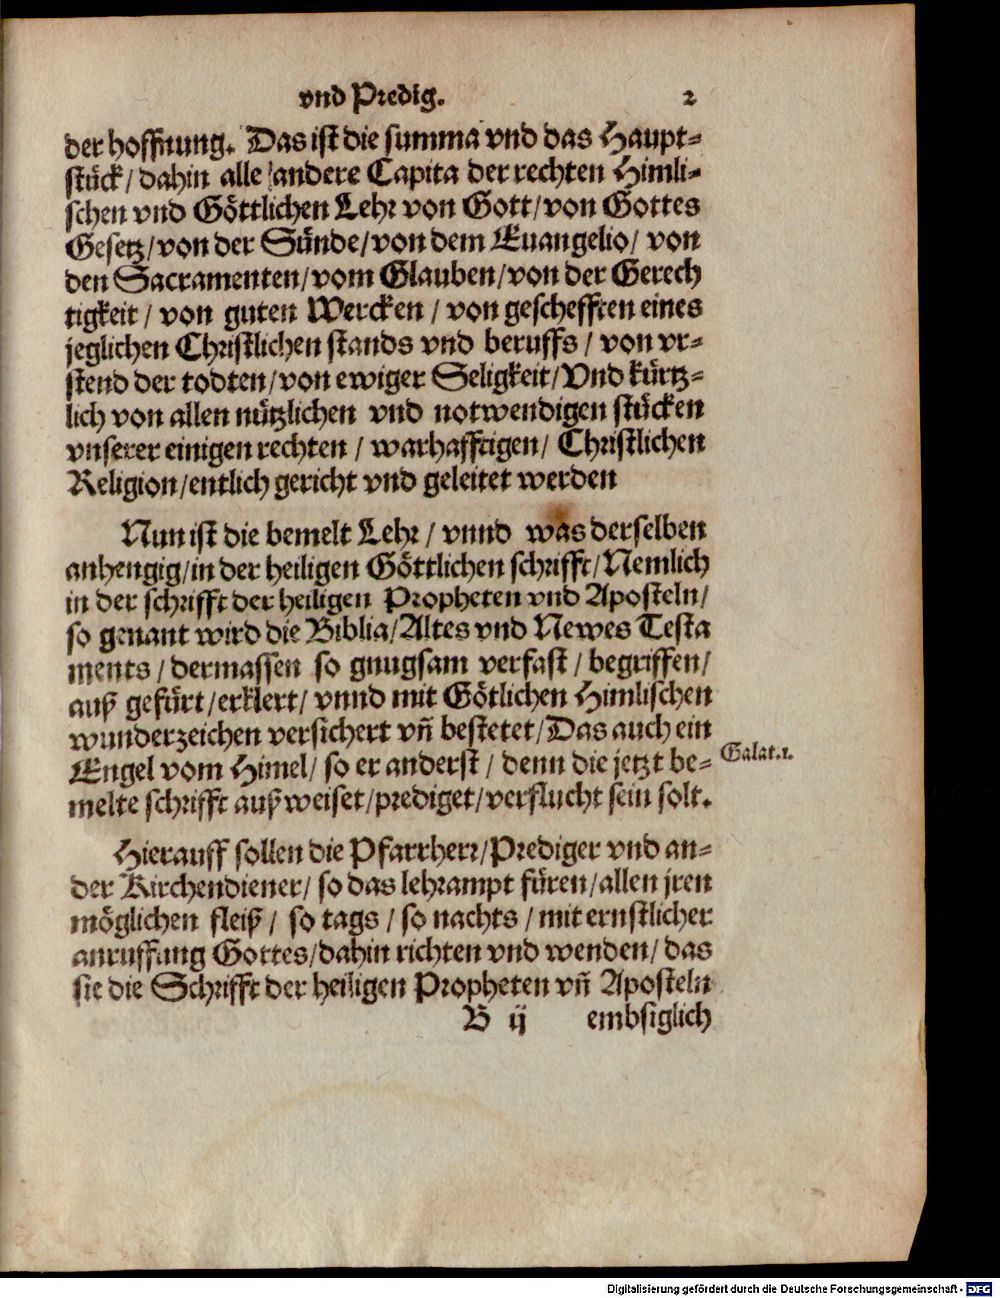 vnd Predig. 2
der hoffnung. Das ist die summa vnd das Haupt-
stück/ dahin alle andere Capita der rechten Himli-
schen vnd Göttlichen Lehr von Gott/von Gottes
Gesetz/von der Sünde/von dem Euangelio/ von
den Sacramenten/vom Glauben/von der Gerech
tigkeit / von guten Wercken / von geschefften eines
jeglichen Christlichen stands vnd beruffs / von vr-
stend der todten/von ewiger Seligkeit/Vnd kürtz-
lich von allen nützlichen vnd notwendigen stücken
vnserer einigen rechten / warhafftigen/ Christlichen
Religion/entlich gericht vnd geleitet werden
Nun ist die bemelt Lehr / vnnd was derselben
anhengig/in der heiligen Göttlichen schrifft/Nemlich
in der schrifft der heiligen Propheten vnd Aposteln/
so genant wird die Biblia/Altes vnd Newes Testa
ments / dermassen so gnugsam verfast / begriffen/
auß gefürt/erklert/ vnnd mit Götlichen Himlischen
wunderzeichen versichert vñ bestetet/Das auch ein
Engel vom Himel/ so er anderst / denn die jetzt be-
Galat.1.
melte schrifft außweiset/prediget/verflucht sein solt.
Hierauff sollen die Pfarrherr/Prediger vnd an-
der Kirchendiener/ so das lehrampt füren/allen jren
möglichen fleiß / so tags / so nachts / mit ernstlicher
anruffung Gottes/dahin richten vnd wenden/ das
sie die Schrifft der heiligen Propheten vñ Aposteln
B ij embsiglich
Digitalisierung gefördert durch die Deutsche Forschungsgemeinschaft - DFG